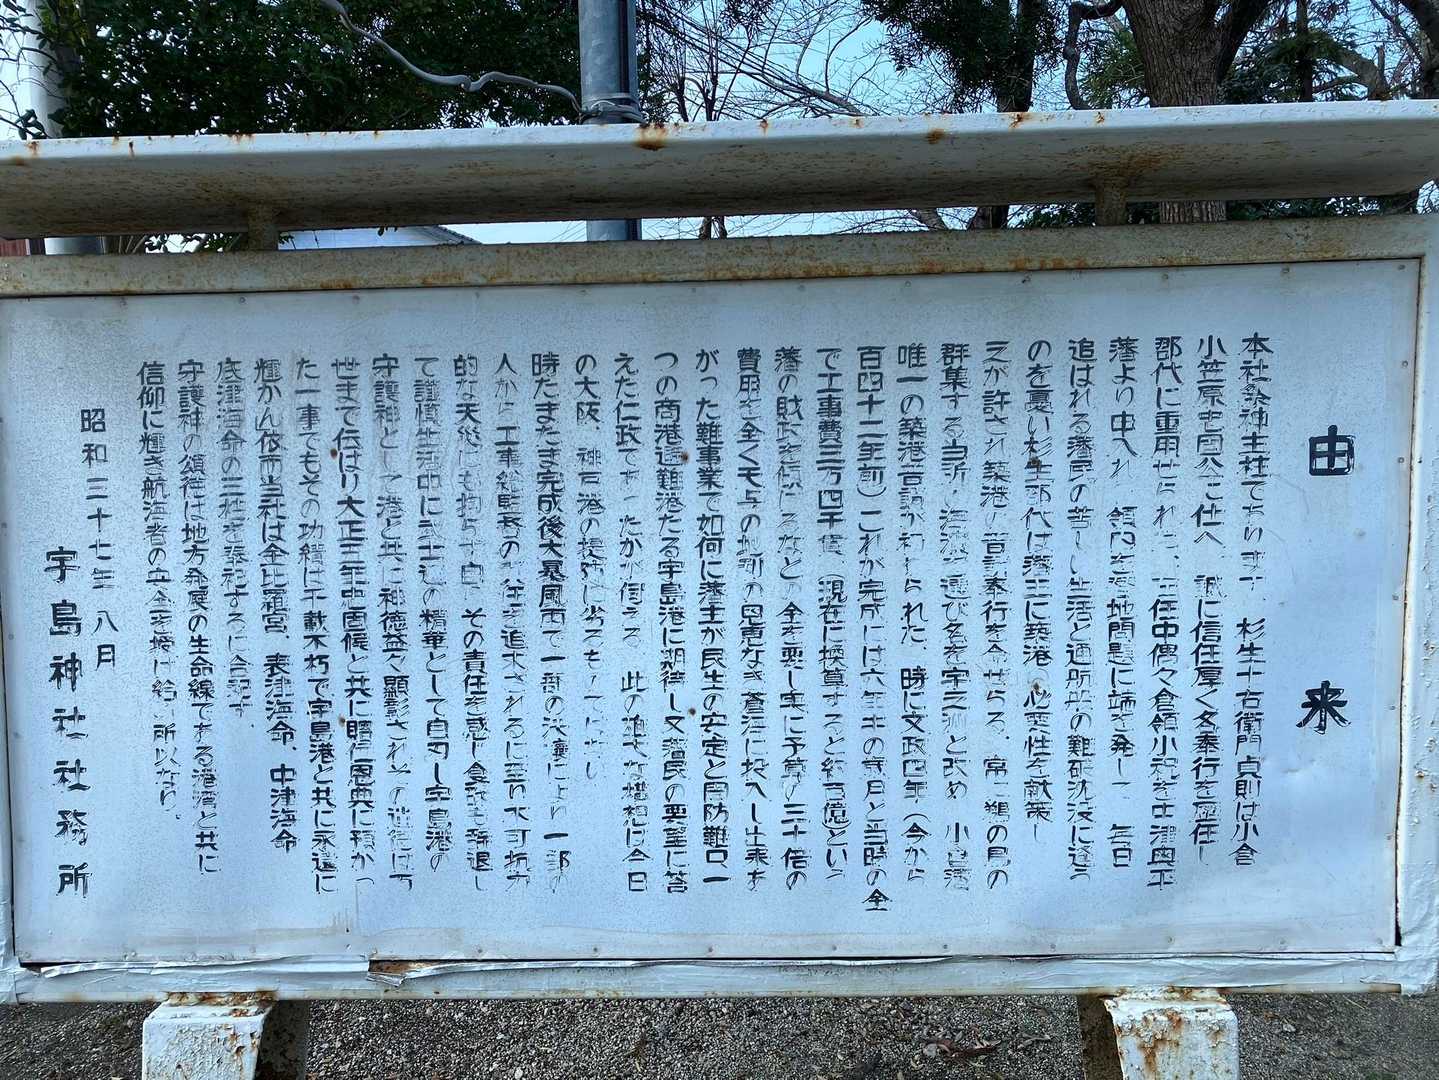 由来
本社祭神主柱であります、杉生十右衛門貞則は小倉
小笠原忠固公に仕へ 誠に信任厚く各奉行を歴任し
郡代に重用せられ 在任中偶々倉領小祝を中津奥平
藩より申入れ 領民を 地問題に端を発して 年日
追はれる藩民の苦しい生活と通航船の難破沈没に逢う
のを憂い杉生郡代は藩主に築港の必要性を献策し
之が許され築港の普請奉行を命ぜらる 常に鵜の鳥の
群集する当所 海 を選び名を宇之洲と改め 小倉藩
唯一の築港普請が初められた、時に文政四年(今から
百四十二年前)これが完成には六年 の歳月と当時の金
で工事費三万四千 (現在に換算すると約 億という
藩の財政を傾けるなどの金を要し実に予算の三十倍の
費用を全く天与の地形の恩恵なき蒼海に投入し出来あ
がった難事業で如何に藩主が民生の安定と国防難只一
つの商港避難港たる宇島港に期待し又藩民の要望に答
えた仁政であったかが伺える 此の雄大な構想は今日
の大阪、神戸港の 劣るものではない
時たまたま完成後大暴風雨で一部の決壊により一部の
人から工事総監督の責任を追求されるに至り不可抗力
的な天災にも拘らず自 その責任を感じ食 も辞退し
て謹慎生活中に武士道の精華として自刃し宇島港の
守護神として港と共に神徳益々顕彰されその遺徳は万
世まで伝はり大正三年忠固候と共に贈位恩典に預かっ
た一事でもその功績は千載不朽で宇島港と共に永遠に
輝かん依而当社は金比羅宮、表津海命、中津海命
底津海命の三柱を奉祀するに合祀す
守護神の頌徳は地方発展の生命線である港湾と共に
信仰に輝き航海者の安全を 給し所以なり、
昭和三十七年 八月
宇島神社社務所